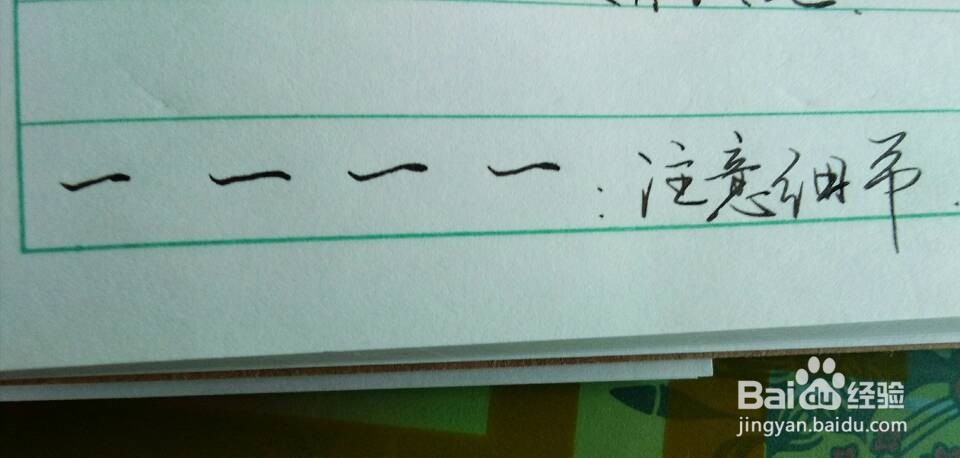 一 一 一 一 : 注意细节.
Baidu 经验
jingyan.baidu.com